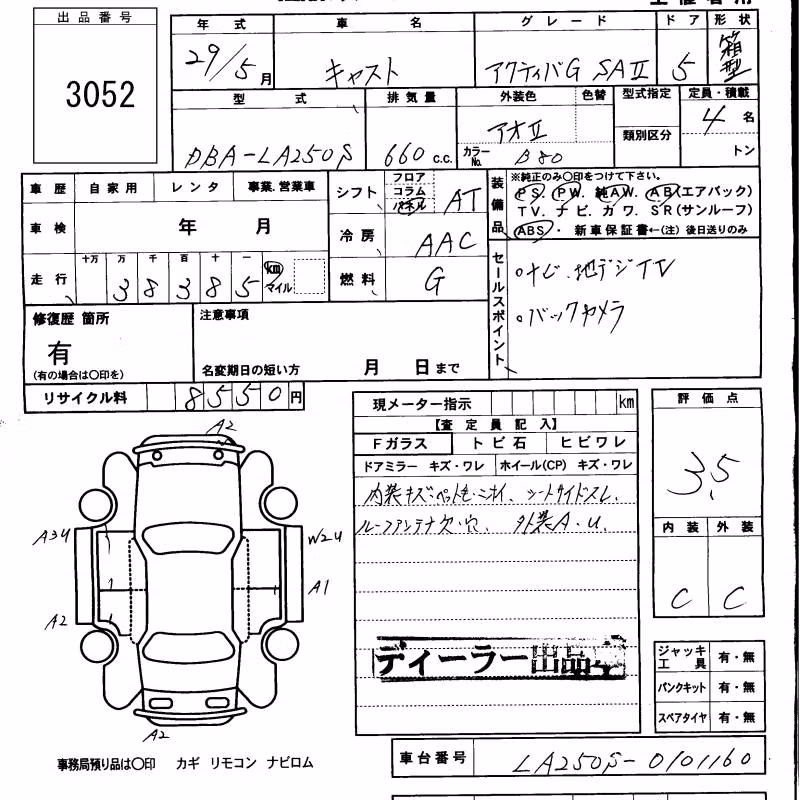 出品番号
3052
年式
29/5月
車名
キャスト
グレード
アクティバG SAⅡ
ドア
5
形状
箱型
型式
DBA-LA250S
排気量
660 c.c.
外装色
アオⅡ
色替
カラーNo.
B80
型式指定
類別区分
定員・積載
4名
トン
車歴
自家用
レンタ
事業.営業車
車検
年 月
走行
十万 万 千 百 十 一
3 8 3 8 5
km
マイル
シフト
フロア
コラム
パネル
AT
冷房
AAC
燃料
G
装備品
※純正のみ○印をつけて下さい。
PS. PW. 純AW. AB(エアバック)
TV. ナビ. カワ. SR(サンルーフ)
ABS・ 新車保証書←(注) 後日送りのみ
セールスポイント
○ナビ.地デジTV
○バックカメラ
修復歴 箇所
有
(有の場合は○印を)
注意事項
名変期日の短い方 月 日まで
リサイクル料
8550円
現メーター指示
km
【査定員記入】
Fガラス
トビ石
ヒビワレ
ドアミラー キズ・ワレ
ホイール(CP) キズ・ワレ
内装キズ・ペット毛・ニオイ、シートサイドスレ、
ルーフアンテナ欠・穴、外装A・U.
ディーラー出品車
評価点
3.5
内装
外装
C
C
A2
A3U
W2U
A1
A2
A2
ジャッキ工具
有・無
パンクキット
有・無
スペアタイヤ
有・無
事務局預り品は○印 カギ リモコン ナビロム
車台番号
LA250S-0101160